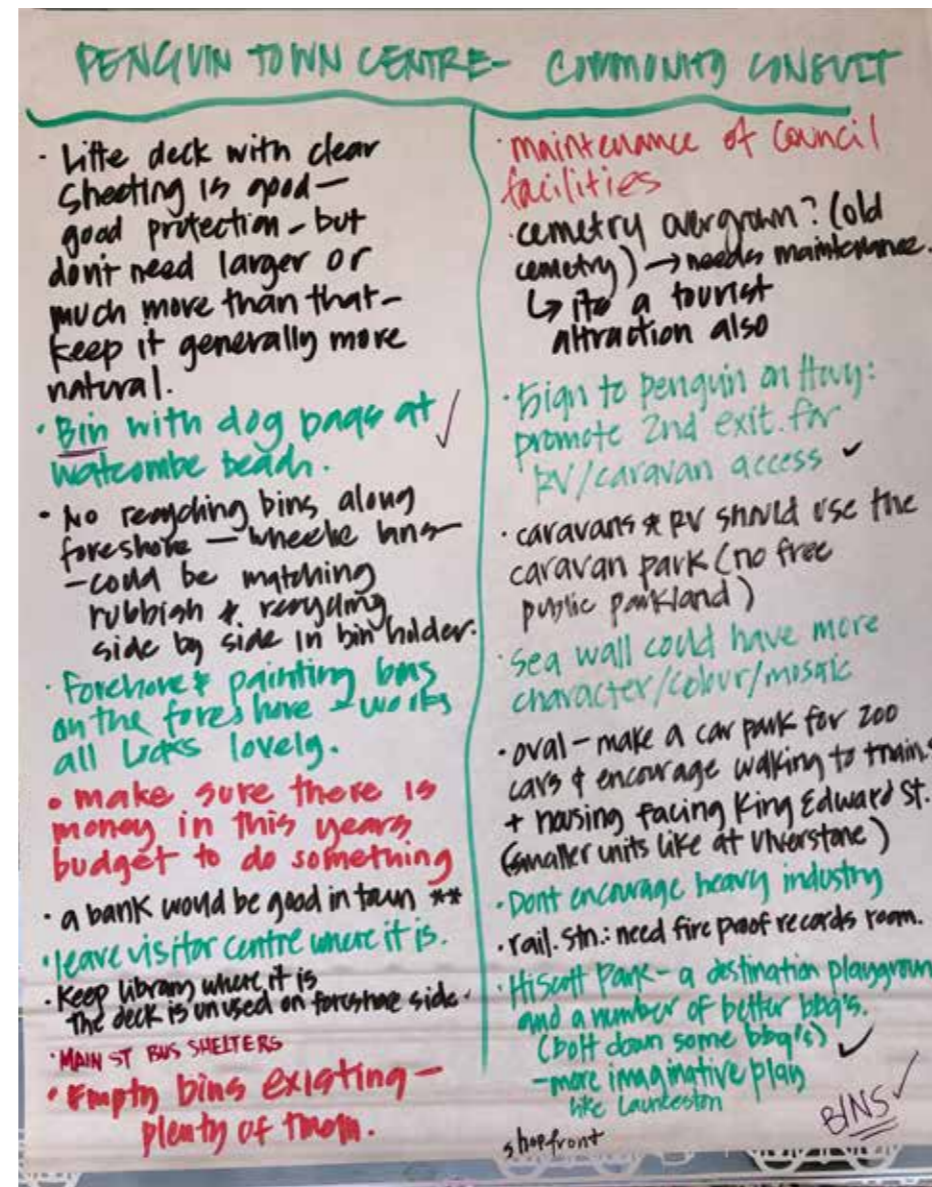 PENGUIN TOWN CENTRE- COMMUNITY CONSULT
· Little deck with clear
sheeting is good —
good protection - but
don't need larger or
much more than that -
keep it generally more
natural.
· Bin with dog bags at ✓
watcombe beach.
· No recycling bins along
foreshore — wheelie bins
- could be matching
rubbish & recycling
side by side in bin holder.
· Foreshore & painting bins
on the foreshore & works
all looks lovely.
· make sure there is
money in this years
budget to do something
· a bank would be good in town **
· leave visitor centre where it is.
· Keep library where it is
The deck is unused on foreshore side.
· MAIN ST BUS SHELTERS
· Empty bins existing —
plenty of them.
· maintenance of Council
facilities
· cemetry overgrown? (old
cemetry) → needs maintenance.
↳ its a tourist
attraction also
· Sign to penguin on Hwy:
promote 2nd exit for
RV/caravan access ✓
· caravans & RV should use the
caravan park (no free
public parkland)
· sea wall could have more
character/colour/mosaic
· oval - make a car park for 200
cars & encourage walking to train.
+ housing facing King Edward St.
(smaller units like at Ulverstone)
· Dont encourage heavy industry
· rail. stn.: need fire proof records room.
· Hiscott Park - a destination playgroun
and a number of better bbq's.
(bolt down some bbq's) ✓
- more imaginative play
like Launceston
BINS ✓
shopfront